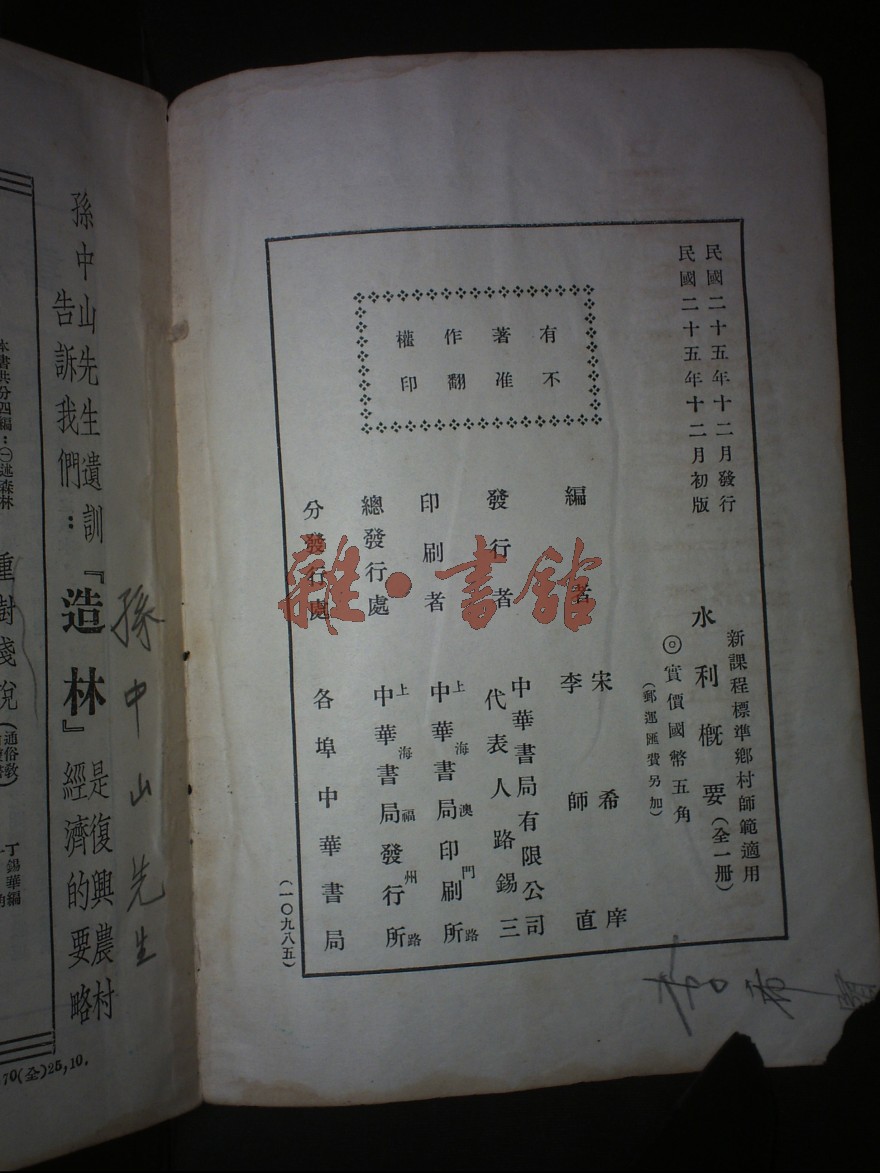 民國二十五年十二月發行
民國二十五年十二月初版
新課程標準鄉村師範適用
水利概要（全一册）
◎實價國幣五角
（郵運匯費另加）
有著作權
不准翻印
編者 宋希庠
李師直
發行者 中華書局有限公司
代表人路錫三
印刷者 上海澳門路
中華書局印刷所
總發行處 上海福州路
中華書局發行所
分發行處 各埠中華書局
（一〇九八五）
雜·書館
孫中山先生
孫中山先生遺訓
告訴我們：
『造林』
是復興農村
經濟的要略
種樹淺說（通俗教
丁錫華編
本書共分四編：㊀述森林
70(全)25,10.